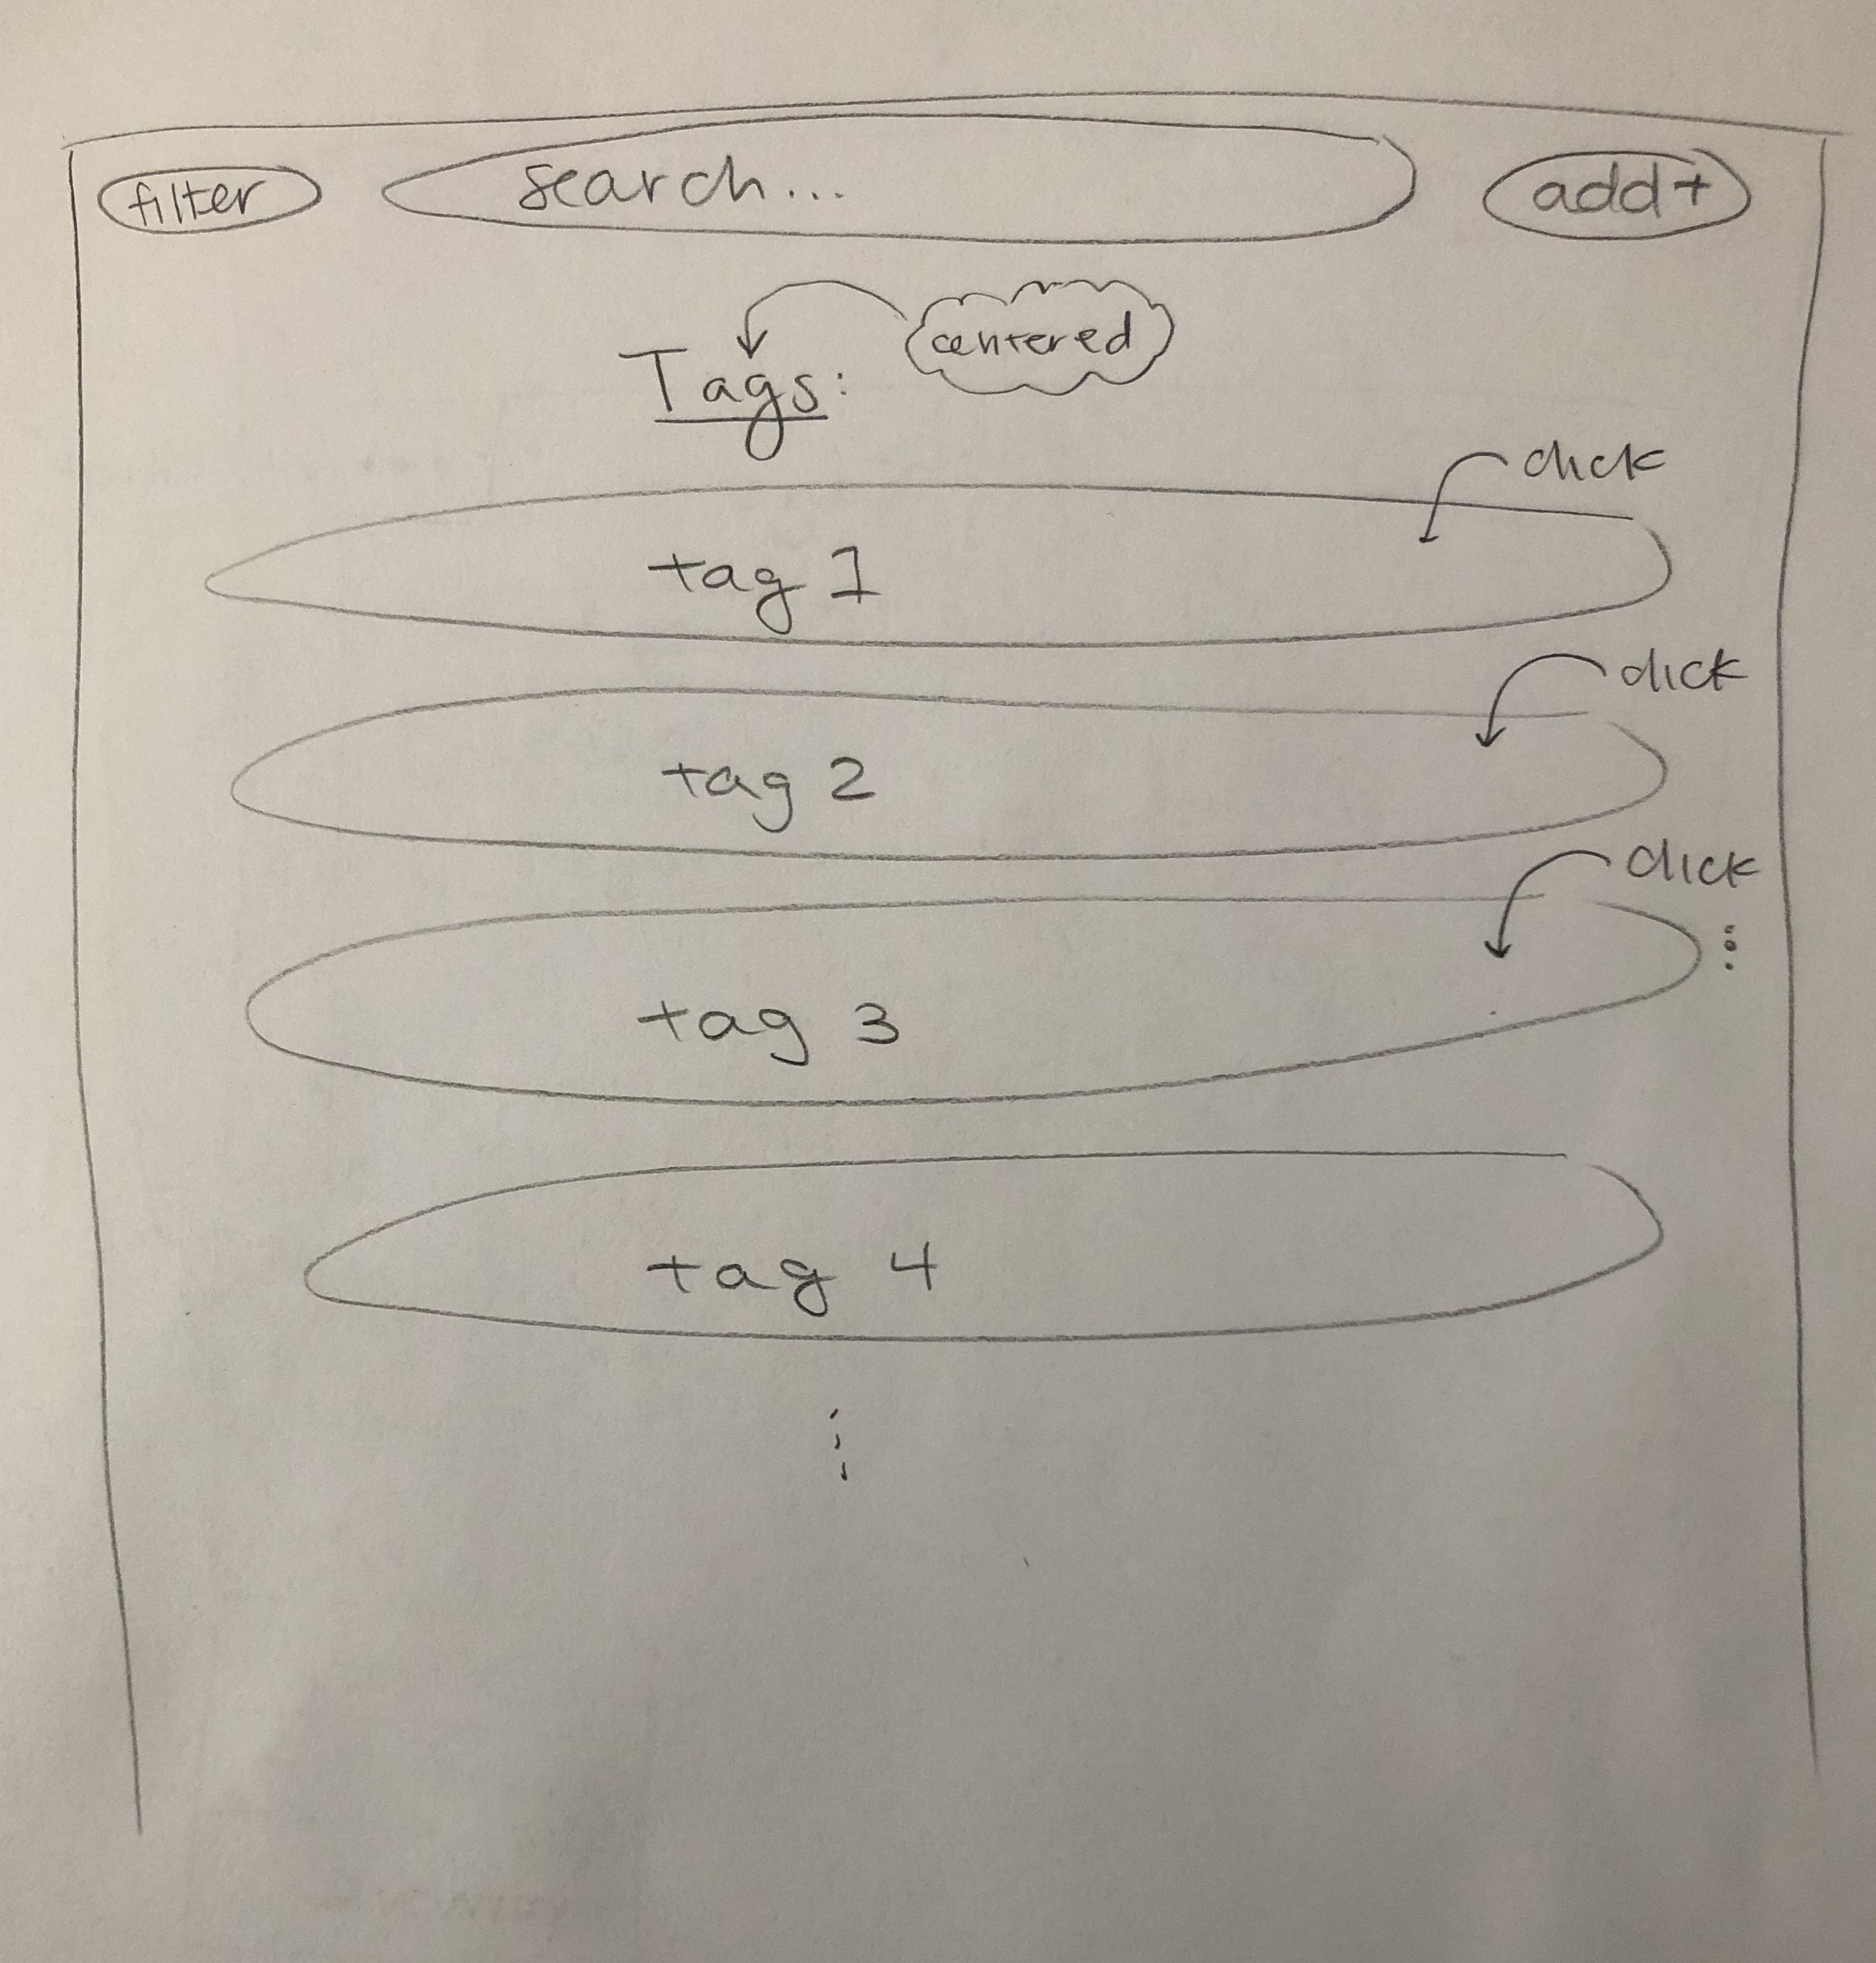 filter search... add+
centered
Tags:
click
tag 1
click
tag 2
click
tag 3
tag 4